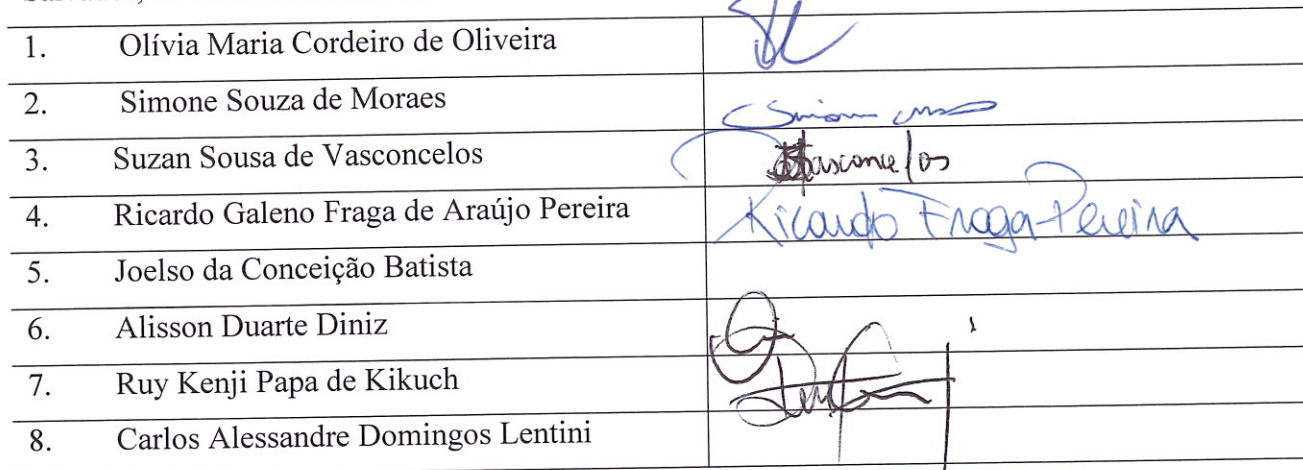 1. Olívia Maria Cordeiro de Oliveira
2. Simone Souza de Moraes
3. Suzan Sousa de Vasconcelos Vasconcelos
4. Ricardo Galeno Fraga de Araújo Pereira Ricardo Fraga Pereira
5. Joelso da Conceição Batista
6. Alisson Duarte Diniz
7. Ruy Kenji Papa de Kikuch
8. Carlos Alessandre Domingos Lentini